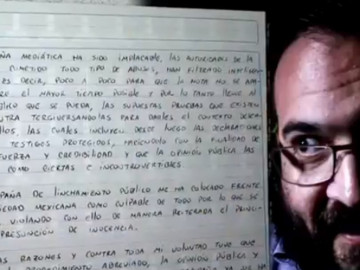 ÑA MEDIÁTICA HA SIDO IMPLACABLE, LAS AUTORIDADES DE LA
COMETIDO TODO TIPO DE ABUSOS, HAN FILTRADO
ES DECIR, POCO A POCO PARA QUE LA NOTA NO SE
RE EL MAYOR TIEMPO POSIBLE Y POR LO TANTO LLEGUE AL
BLICO QUE SE PUEDA, LAS SUPUESTAS PRUEBAS QUE EXISTEN
NTRA TERGIVERSANDOLAS PARA DARLES EL CONTEXTO DESEA
LLOS, LAS CUALES INCLUYEN DESDE LUEGO LAS DECLARACIONES
TESTIGOS PROTEGIDOS, HACIENDOLO CON LA FINALIDAD DE
FUERZA Y CREDIBILIDAD Y QUE LA OPINIÓN PÚBLICA LAS
COMO CIERTAS E INCONTROVERTIBLES
PAÑA DE LINCHAMIENTO PÚBLICO ME HA COLOCADO FRENTE
IEDAD MEXICANA COMO CULPABLE DE TODO POR LO QUE SE
VIOLANDO CON ELLO DE MANERA REITERADA EL PRINCI
PRESUNCIÓN DE INOCENCIA.
AS RAZONES Y CONTRA TODA MI VOLUNTAD TUVE QUE
PROCEDIMIENTO ABREVIADO, LA OPINIÓN PÚBLICA Y